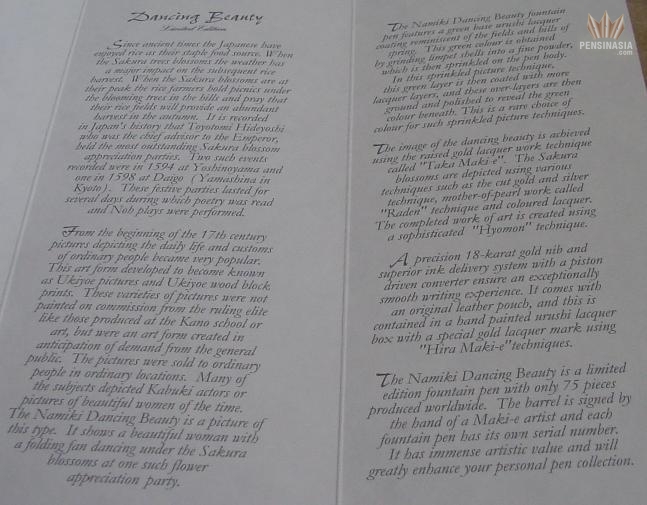 Dancing Beauty
Limited Edition
Since ancient times the Japanese have
enjoyed rice as their staple food source. When
the Sakura trees blossoms the weather has
a major impact on the subsequent rice
harvest. When the Sakura blossoms are at
their peak the rice farmers hold picnics under
the blooming trees in the hills and pray that
their rice fields will provide an abundant
harvest in the autumn. It is recorded
in Japan's history that Toyotomi Hideyoshi
who was the chief advisor to the Emperor,
held the most outstanding Sakura blossom
appreciation parties. Two such events
recorded were in 1594 at Yoshinoyama and
one in 1598 at Daigo (Yamashina in
Kyoto). These festive parties lasted for
several days during which poetry was read
and Noh plays were performed.
From the beginning of the 17th century
pictures depicting the daily life and customs
of ordinary people became very popular.
This art form developed to become known
as Ukiyoe pictures and Ukiyoe wood block
prints. These varieties of pictures were not
painted on commission from the ruling elite
like those produced at the Kano school or
art, but were an art form created in
anticipation of demand from the general
public. The pictures were sold to ordinary
people in ordinary locations. Many of
the subjects depicted Kabuki actors or
pictures of beautiful women of the time.
The Namiki Dancing Beauty is a picture of
this type. It shows a beautiful woman with
a folding fan dancing under the Sakura
blossoms at one such flower
appreciation party.
The Namiki Dancing Beauty fountain
pen features a green base urushi lacquer
coating reminiscent of the fields and hills of
spring. This green colour is obtained
by grinding limpet shells into a fine powder,
which is then sprinkled on the pen body.
In this sprinkled picture technique,
this green layer is then coated with more
lacquer layers, and these over-layers are then
ground and polished to reveal the green
colour beneath. This is a rare choice of
colour for such sprinkled picture techniques.
The image of the dancing beauty is achieved
using the raised gold lacquer work technique
called "Taka Maki-e". The Sakura
blossoms are depicted using various
techniques such as the cut gold and silver
technique, mother-of-pearl work called
"Raden" technique and coloured lacquer.
The completed work of art is created using
a sophisticated "Hyomon" technique.
A precision 18-karat gold nib and
superior ink delivery system with a piston
driven converter ensure an exceptionally
smooth writing experience. It comes with
an original leather pouch, and this is
contained in a hand painted urushi lacquer
box with a special gold lacquer mark using
"Hira Maki-e" techniques.
The Namiki Dancing Beauty is a limited
edition fountain pen with only 75 pieces
produced worldwide. The barrel is signed by
the hand of a Maki-e artist and each
fountain pen has its own serial number.
It has immense artistic value and will
greatly enhance your personal pen collection.
PENSINASIA
.com